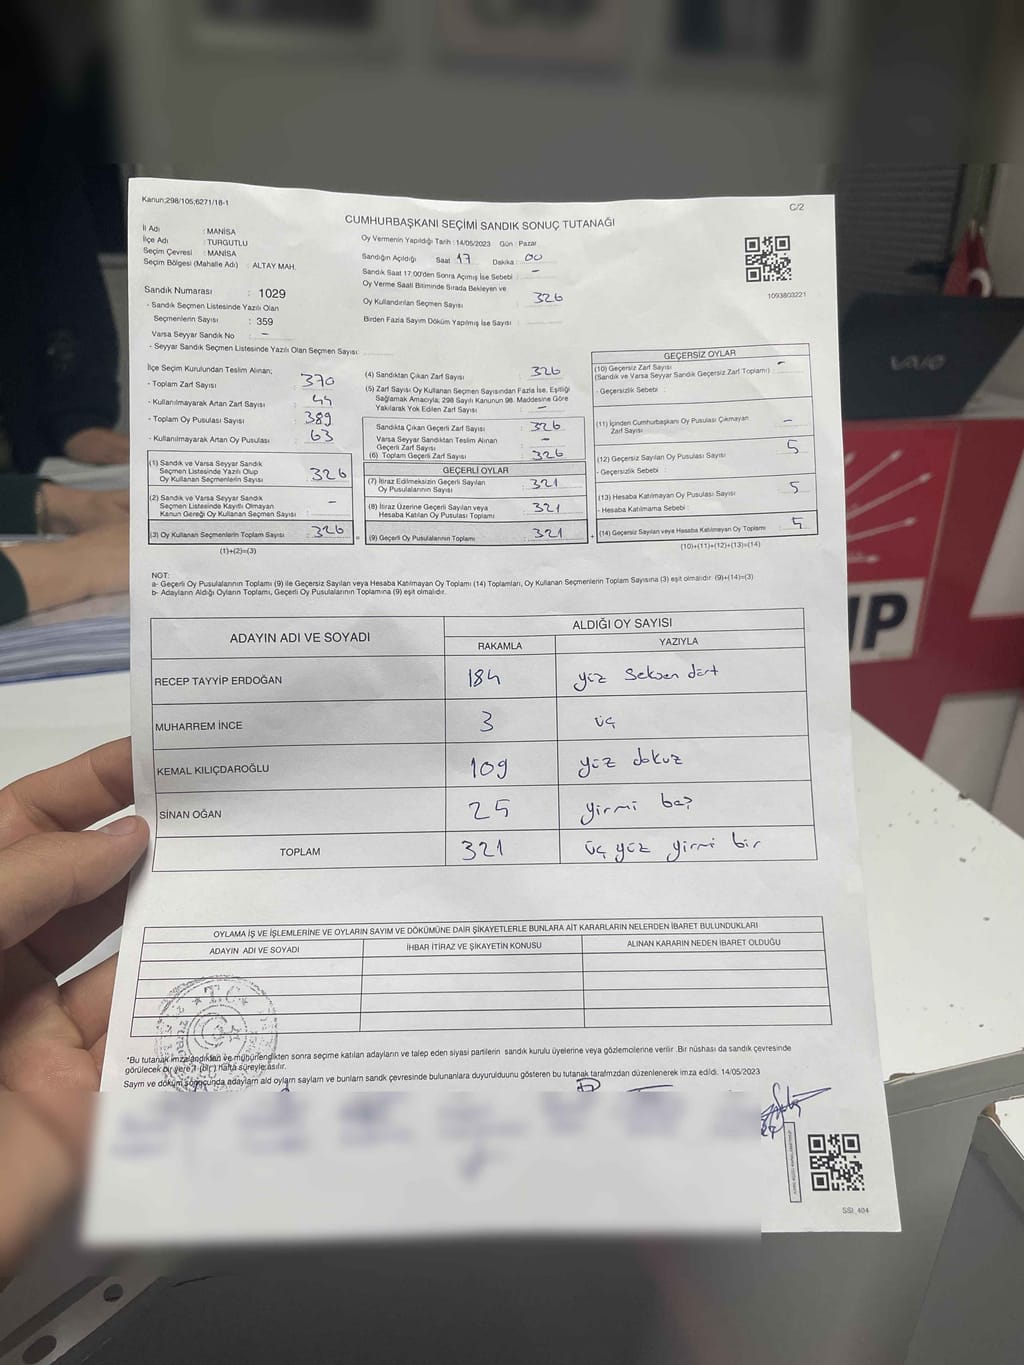 Kanun;298/105;6271/16-1
C/2
CUMHURBAŞKANI SEÇİMİ SANDIK SONUÇ TUTANAĞI
İl Adı : MANİSA
İlçe Adı : TURGUTLU
Seçim Çevresi : MANİSA
Seçim Bölgesi (Mahalle Adı) : ALTAY MAH.
Sandık Numarası : 1029
- Sandık Seçmen Listesinde Yazılı Olan
Seçmenlerin Sayısı : 359
Varsa Seyyar Sandık No : -
- Seyyar Sandık Seçmen Listesinde Yazılı Olan Seçmen Sayısı:
Oy Vermenin Yapıldığı Tarih : 14/05/2023 Gün : Pazar
Sandığın Açıldığı Saat 17 Dakika : 00
Sandık Saat 17:00'den Sonra Açımış İse Sebebi : -
Oy Verme Saati Bitiminde Sırada Bekleyen ve
Oy Kullandırılan Seçmen Sayısı : 326
Birden Fazla Sayım Döküm Yapılmış İse Sayısı :
1093803221
İlçe Seçim Kurulundan Teslim Alınan;
- Toplam Zarf Sayısı : 370
- Kullanılmayarak Artan Zarf Sayısı : 44
- Toplam Oy Pusulası Sayısı : 389
- Kullanılmayarak Artan Oy Pusulası : 63
(1) Sandık ve Varsa Seyyar Sandık
Seçmen Listesinde Yazılı Olup
Oy Kullanan Seçmenlerin Sayısı : 326
(2) Sandık ve Varsa Seyyar Sandık
Seçmen Listesinde Kayıtlı Olmayan
Kanun Gereği Oy Kullanan Seçmen Sayısı : -
(3) Oy Kullanan Seçmenlerin Toplam Sayısı : 326
(1)+(2)=(3)
=
(4) Sandıktan Çıkan Zarf Sayısı : 326
(5) Zarf Sayısı Oy Kullanan Seçmen Sayısından Fazla İse, Eşitliği
Sağlamak Amacıyla; 298 Sayılı Kanunun 98. Maddesine Göre
Yakılarak Yok Edilen Zarf Sayısı : -
Sandıkta Çıkan Geçerli Zarf Sayısı : 326
Varsa Seyyar Sandıktan Teslim Alınan
Geçerli Zarf Sayısı : -
(6) Toplam Geçerli Zarf Sayısı : 326
GEÇERLİ OYLAR
(7) İtiraz Edilmeksizin Geçerli Sayılan
Oy Pusulalarının Sayısı : 321
(8) İtiraz Üzerine Geçerli Sayılan veya
Hesaba Katılan Oy Pusulası Toplamı : 321
(9) Geçerli Oy Pusulalarının Toplamı : 321
+
GEÇERSİZ OYLAR
(10) Geçersiz Zarf Sayısı -
(Sandık ve Varsa Seyyar Sandık Geçersiz Zarf Toplamı) :
- Geçersizlik Sebebi :
(11) İçinden Cumhurbaşkanı Oy Pusulası Çıkmayan
Zarf Sayısı : -
(12) Geçersiz Sayılan Oy Pusulası Sayısı : 5
- Geçersizlik Sebebi :
(13) Hesaba Katılmayan Oy Pusulası Sayısı : 5
- Hesaba Katılmama Sebebi :
(14) Geçersiz Sayılan veya Hesaba Katılmayan Oy Toplamı : 5
(10)+(11)+(12)+(13)=(14)
NOT:
a- Geçerli Oy Pusulalarının Toplamı (9) ile Geçersiz Sayılan veya Hesaba Katılmayan Oy Toplamı (14) Toplamları, Oy Kullanan Seçmenlerin Toplam Sayısına (3) eşit olmalıdır. (9)+(14)=(3)
b- Adayların Aldığı Oyların Toplamı, Geçerli Oy Pusulalarının Toplamına (9) eşit olmalıdır.
ADAYIN ADI VE SOYADI
ALDIĞI OY SAYISI
RAKAMLA YAZIYLA
RECEP TAYYİP ERDOĞAN 184 yüz seksen dört
MUHARREM İNCE 3 üç
KEMAL KILIÇDAROĞLU 109 yüz dokuz
SİNAN OĞAN 25 yirmi beş
TOPLAM 321 üç yüz yirmi bir
OYLAMA İŞ VE İŞLEMLERİNE VE OYLARIN SAYIM VE DÖKÜMÜNE DAİR ŞİKAYETLERLE BUNLARA AİT KARARLARIN NELERDEN İBARET BULUNDUKLARI
ADAYIN ADI VE SOYADI İHBAR İTİRAZ VE ŞİKAYETİN KONUSU ALINAN KARARIN NEDEN İBARET OLDUĞU
T.C.
*Bu tutanak imzalandıktan ve mühürlendikten sonra seçime katılan adayların ve talep eden siyasi partilerin sandık kurulu üyelerine veya gözlemcilerine verilir .Bir nüshası da sandık çevresinde
görülecek bir yere 1 (bir) hafta süreyle asılır.
Sayım ve döküm sonucunda adayların ald oyların sayların ve bunların sandk çevresinde bulunanlara duyurulduunu gösteren bu tutanak tarafmzdan düzenlenerek imza edildi. 14/05/2023
SSI_404
VAIO